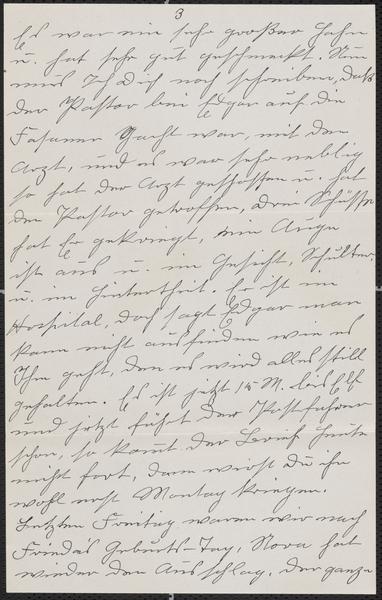 3
Es war ein sehr großer Hahn
u. hat sehr gut geschmeckt. Nun
muss Ich Dich noch schreiben, daß
der Pastor bei Edgar auf die
Fasanen Jacht war, mit den
Arzt, und es war sehr neblig
so hat der Arzt geschossen u. hat
den Pastor getroffen, drei Schüsse
hat Er gekriegt, ein Auge
ist aus u. im Gesicht, Schulter,
u. im Hintertheil. Er ist im
Hospital, doch sagt Edgar man
kann nicht ausfinden wie es
Ihn geht, den es wird alles still
gehalten. Es ist jetzt 15 M. bis Elf
und jetzt fährt der Postfahrer
schon, so kommt der Brief heute
nicht fort, dann wirst Du ihn
wohl erst Montag kriegen.
Letzten Freitag waren wir nach
Frieda's Geburts-Tag, Nora hat
wieder den Ausschlag, der ganze